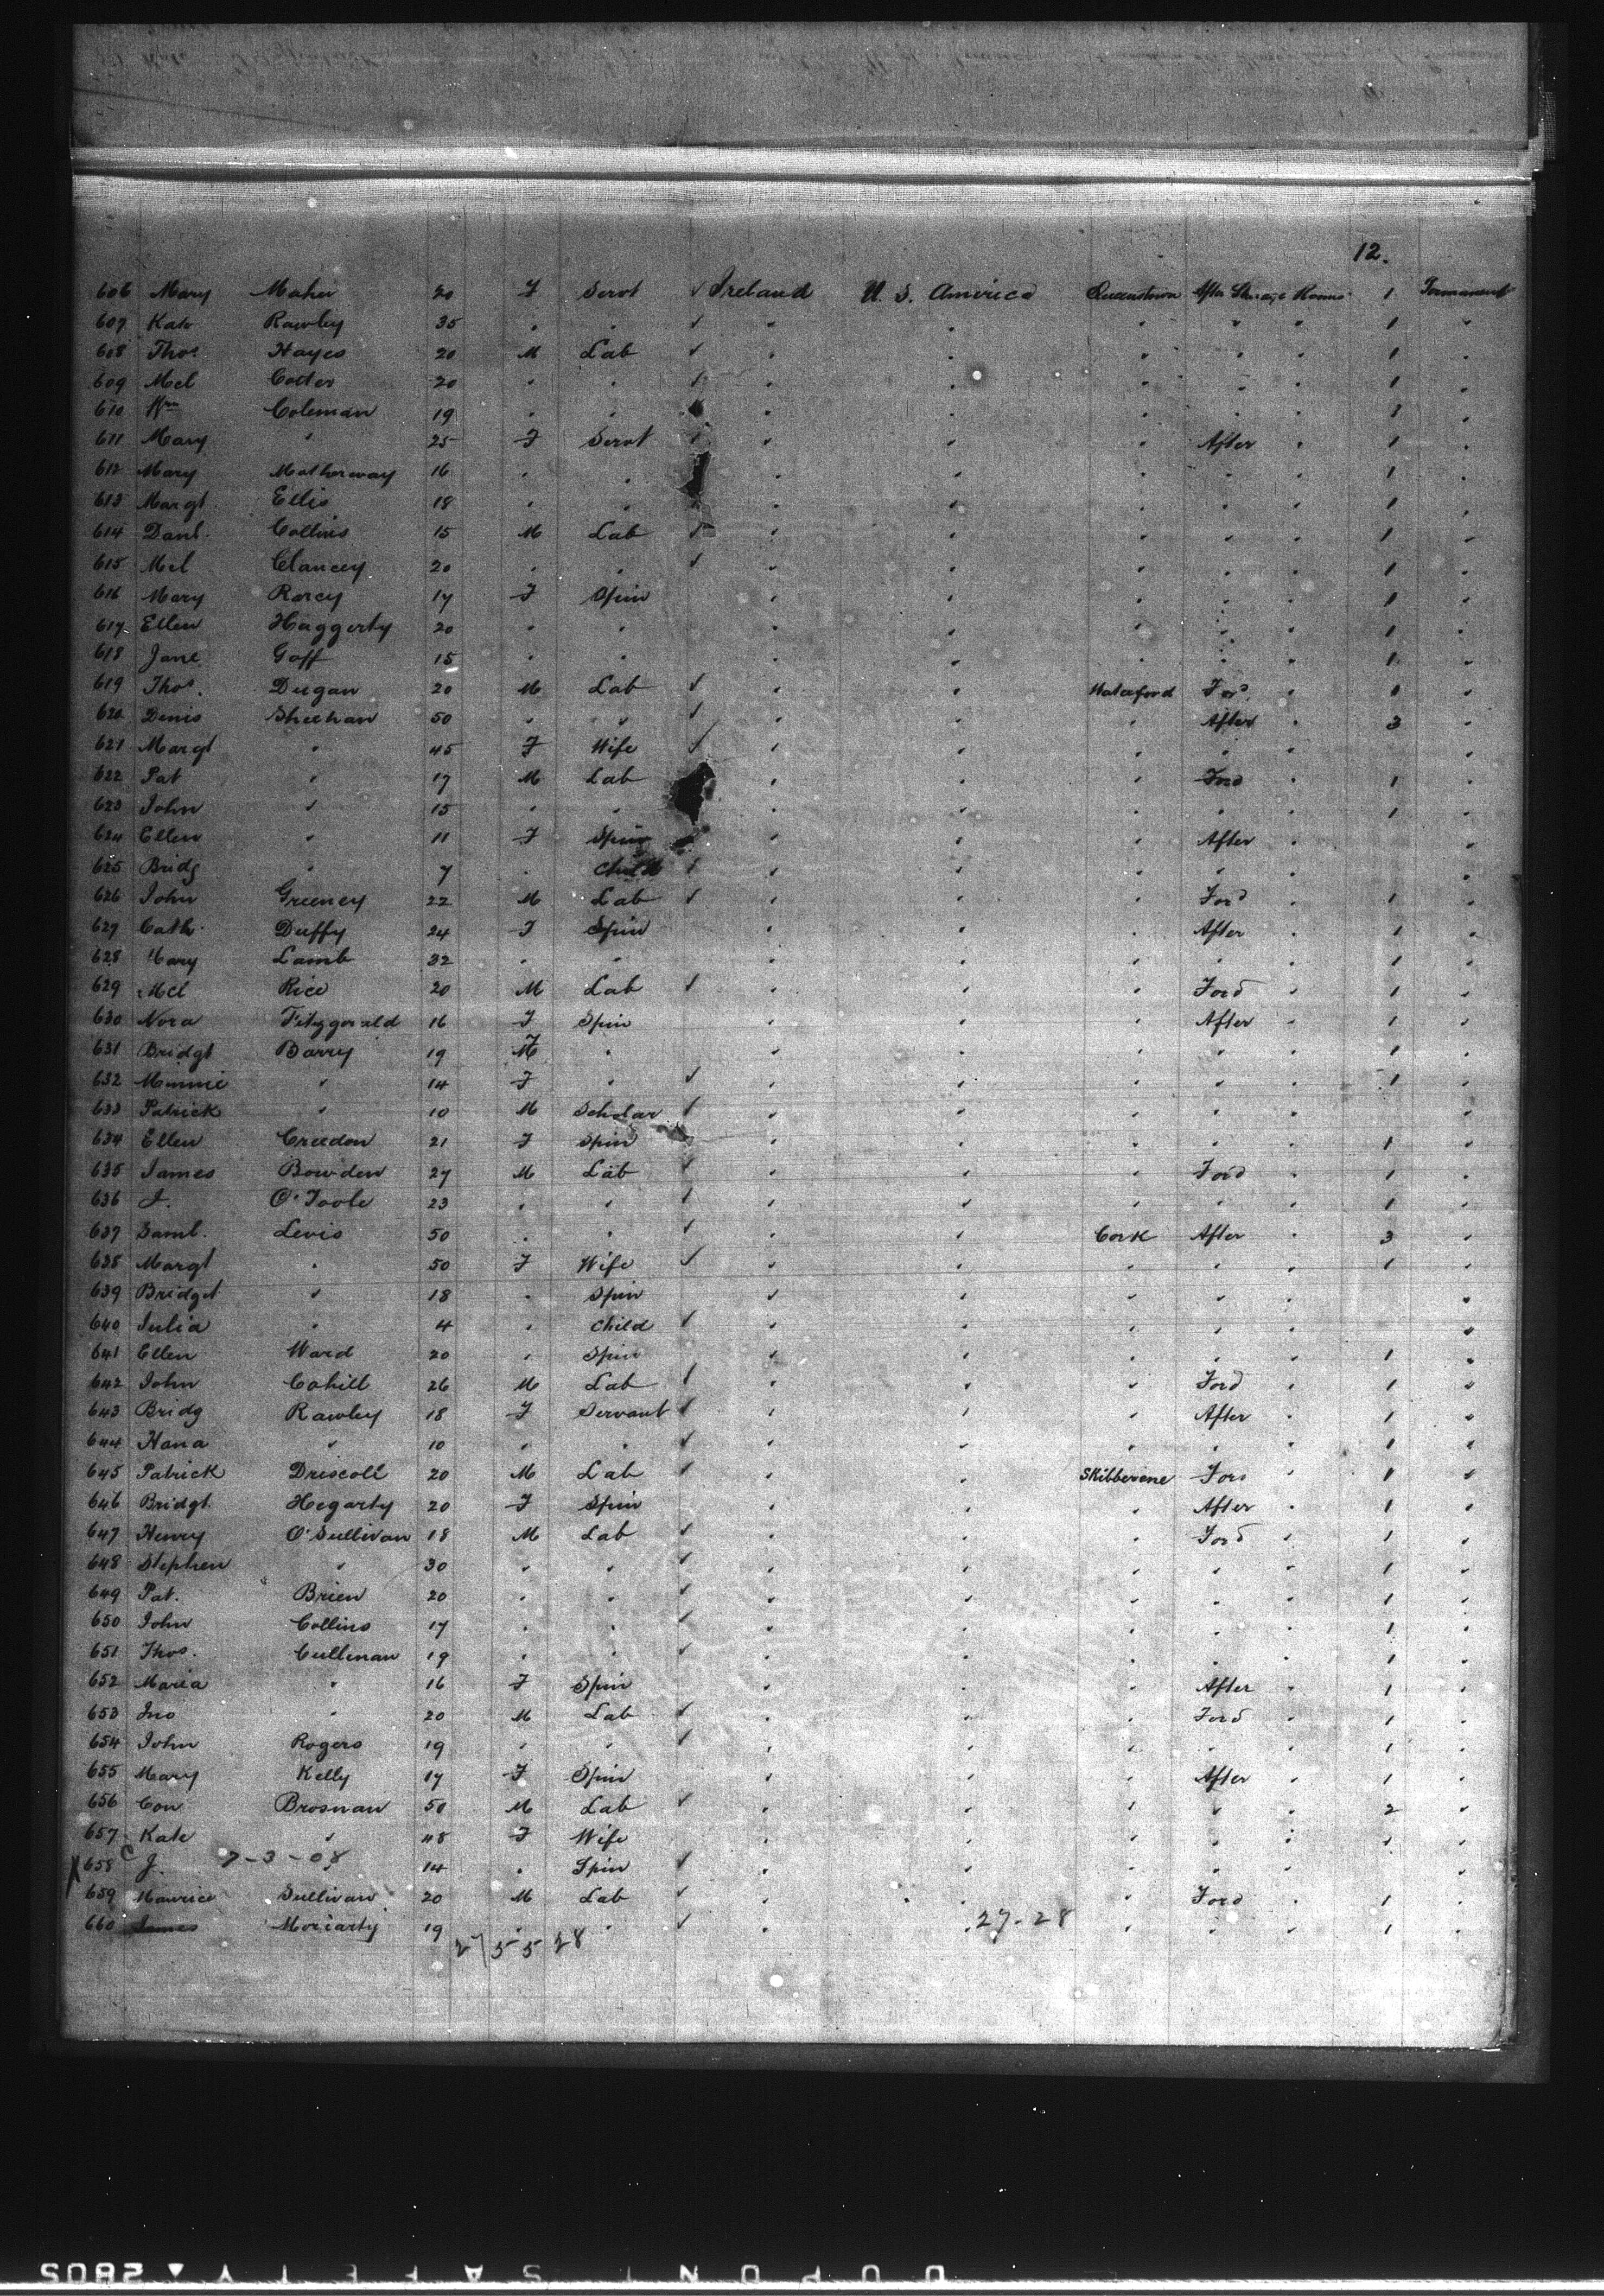 12.
606 Mary Maher 20 F Servt √ Ireland U. S. America Queenstown After Steerage Rooms 1 Permanent
607 Kate Rawley 35 " " √ " " " " " 1 "
608 Thos Hayes 20 M Lab √ " " " " " 1 "
609 Mcl Cotter 20 " " √ " " " " " 1 "
610 Wm Coleman 19 " " " " " " " 1 "
611 Mary " 25 F Servt √ " " " After " 1 "
612 Mary Motherway 16 " " " " " " " 1 "
613 Margt Ellis 18 " " " " " " " 1 "
614 Danl. Collins 15 M Lab √ " " " " " 1 "
615 Mcl Clancey 20 " " √ " " " " " 1 "
616 Mary Rorcy 17 F Spin " " " " " 1 "
617 Ellen Haggerty 20 " " " " " " " 1 "
618 Jane Goff 15 " " " " " " " 1 "
619 Thos. Dugan 20 M Lab √ " " Waterford Ford " 1 "
620 Denis Sheehan 50 " " √ " " " After " 3 "
621 Margt " 45 F Wife √ " " " " " "
622 Pat " 17 M Lab " " " Ford " 1 "
623 John " 15 " " " " " " " 1 "
624 Ellen " 11 F Spin " " " After " "
625 Bridg " 7 " Child √ " " " " " "
626 John Greeney 22 M Lab √ " " " Ford " 1 "
627 Cath. Duffy 24 F Spin " " " After " 1 "
628 Mary Lamb 32 " " " " " " " 1 "
629 Mcl Rice 20 M Lab √ " " " Ford " 1 "
630 Nora Fitzgerald 16 F Spin " " " After " 1 "
631 Bridgt Barry 19 F " " " " " " 1 "
632 Minnie " 14 F " √ " " " " " 1 "
633 Patrick " 10 M Scholar √ " " " " " "
634 Ellen Creedon 21 F Spin " " " " " 1 "
635 James Bowden 27 M Lab √ " " " Ford " 1 "
636 J. O'Toole 23 " " √ " " " " " 1 "
637 Saml. Levis 50 " " √ " " Cork After " 3 "
638 Margt " 50 F Wife √ " " " " " 1 "
639 Bridget " 18 " Spin " " " " " "
640 Julia " 4 " Child √ " " " " " "
641 Ellen Ward 20 " Spin " " " " " 1 "
642 John Cahill 26 M Lab √ " " " Ford " 1 "
643 Bridg Rawley 18 F Servant √ " " " After " 1 "
644 Hana " 10 " " √ " " " " " 1 "
645 Patrick Driscoll 20 M Lab √ " " Skibberene Ford " 1 "
646 Bridgt. Hegarty 20 F Spin " " " After " 1 "
647 Henry O'Sullivan 18 M Lab √ " " " Ford " 1 "
648 Stephen " 30 " " √ " " " " " 1 "
649 Pat. Brien 20 " " √ " " " " " 1 "
650 John Collins 17 " " √ " " " " " 1 "
651 Thos. Cullinan 19 " " √ " " " " " 1 "
652 Maria " 16 F Spin " " " After " 1 "
653 Jno " 20 M Lab √ " " " Ford " 1 "
654 John Rogers 19 " " √ " " " " " 1 "
655 Mary Kelly 17 F Spin " " " After " 1 "
656 Con Brosnan 50 M Lab √ " " " " " 2 "
657 Kate " 48 F Wife " " " " " " "
X 658 C J. 7-3-08 " 14 " Spin √ " " " " " "
659 Maurice Sullivan 20 M Lab √ " " " Ford " 1 "
660 James Moriarty 19 " " √ " " 27-28 " " " 1 "
27 55 28
DUPONT SAFETY ▲ 2805